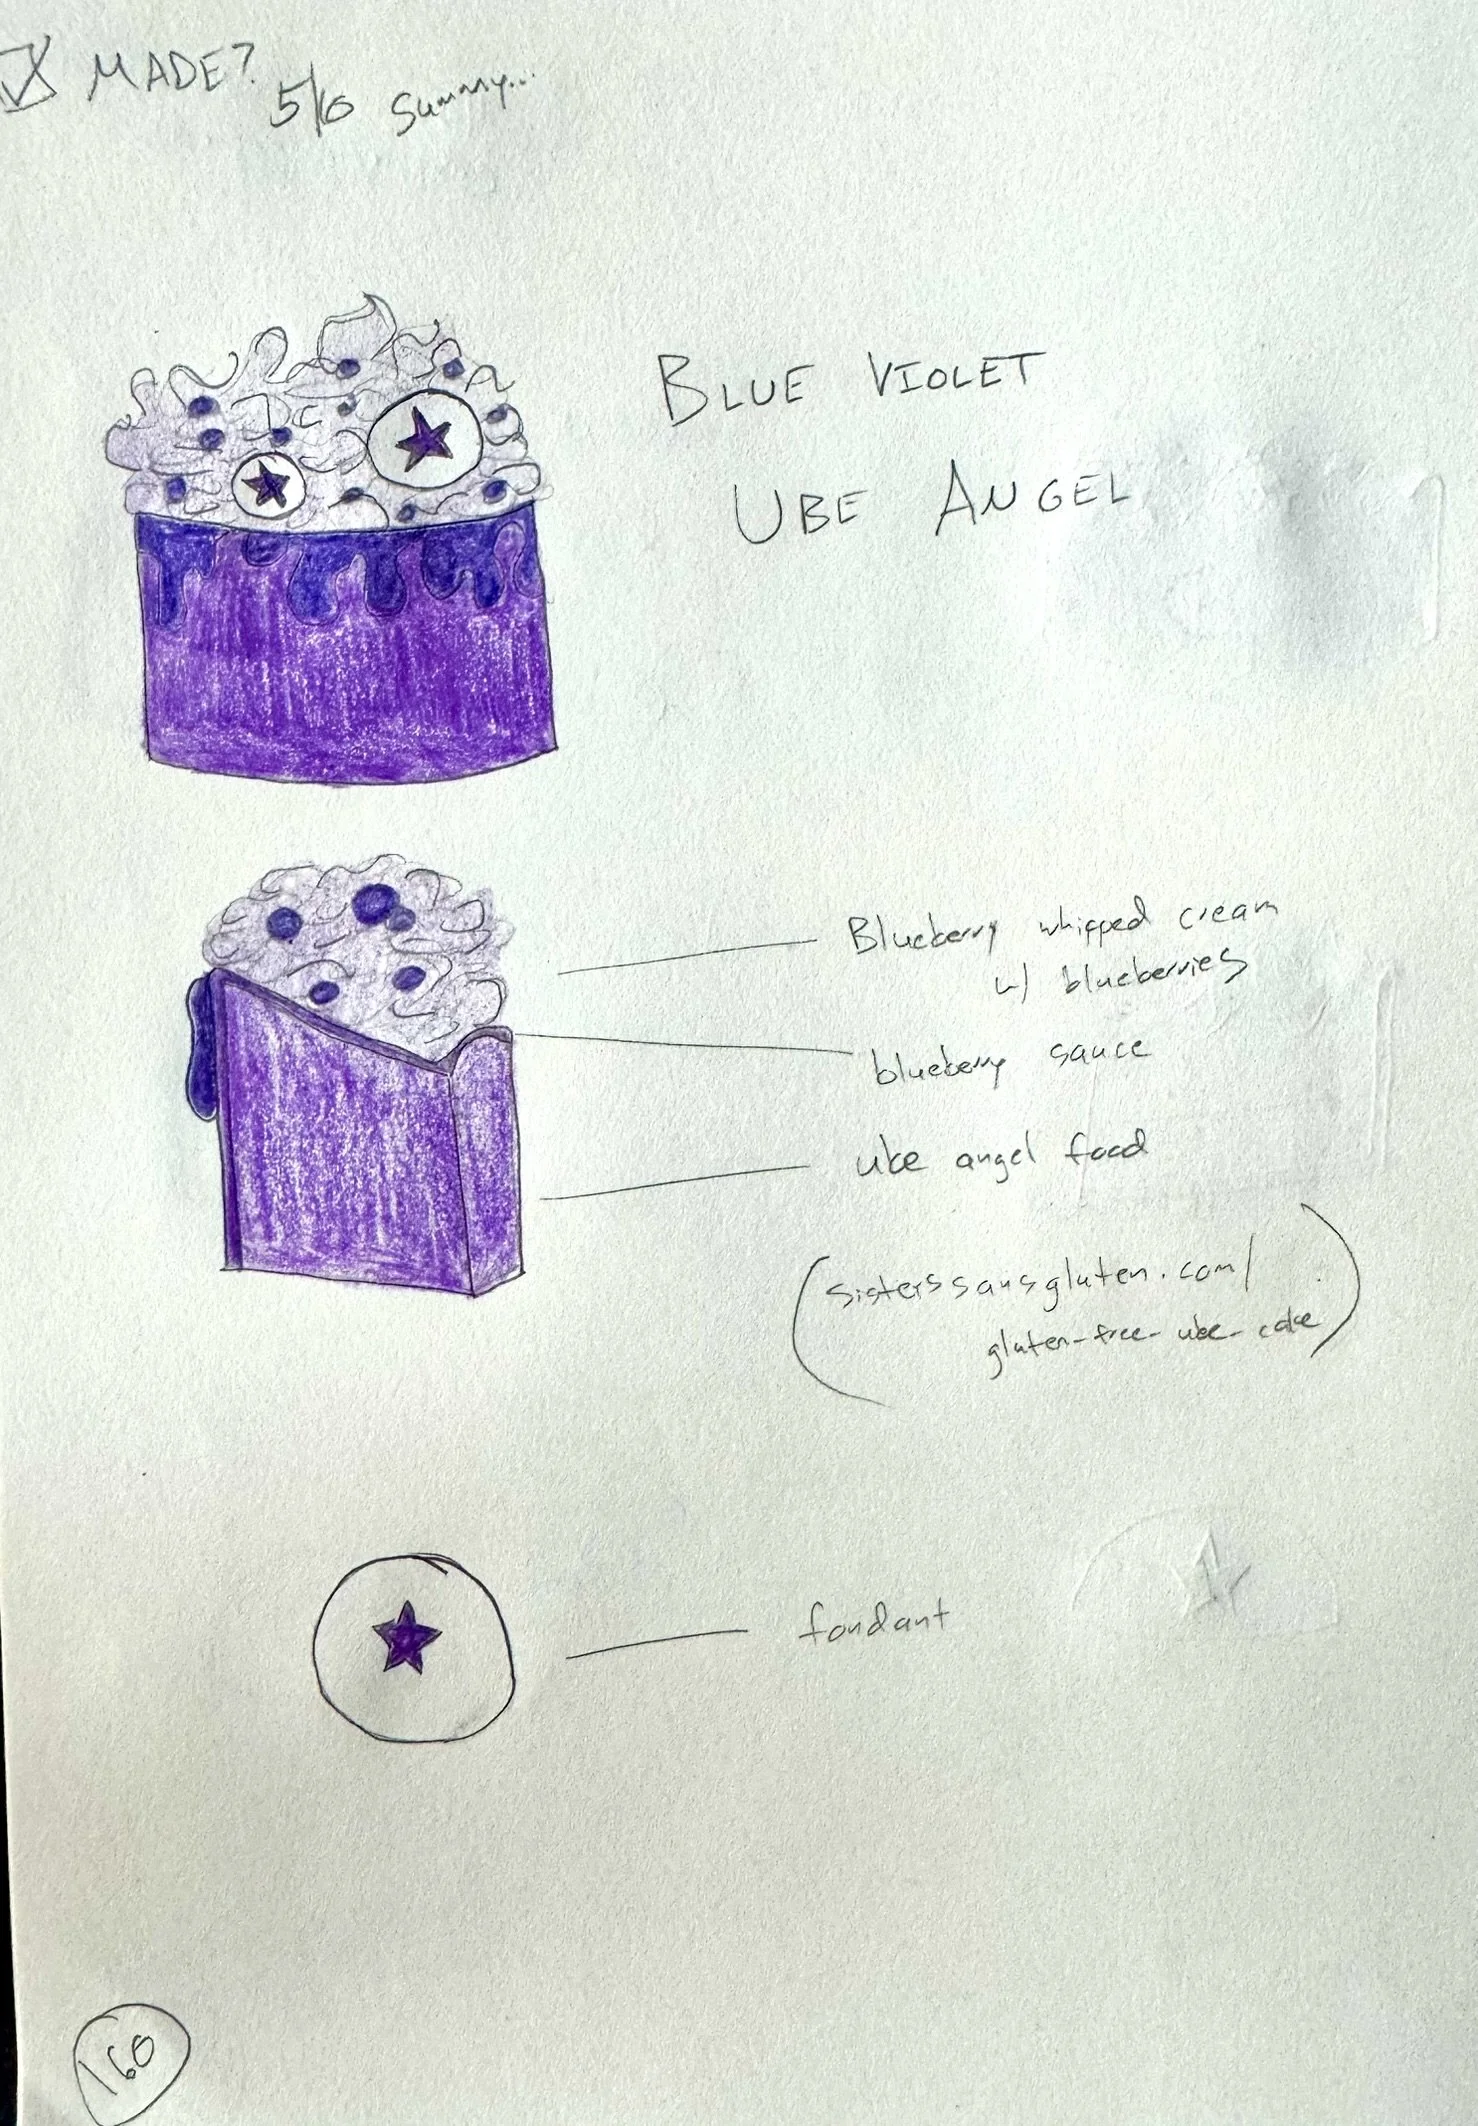 MADE?
5/6 Summy...
BLUE VIOLET
UBE ANGEL
Blueberry whipped cream
w/ blueberries
blueberry sauce
ube angel food
(sisterssansgluten.com/
gluten-free-ube-cake)
fondant
160